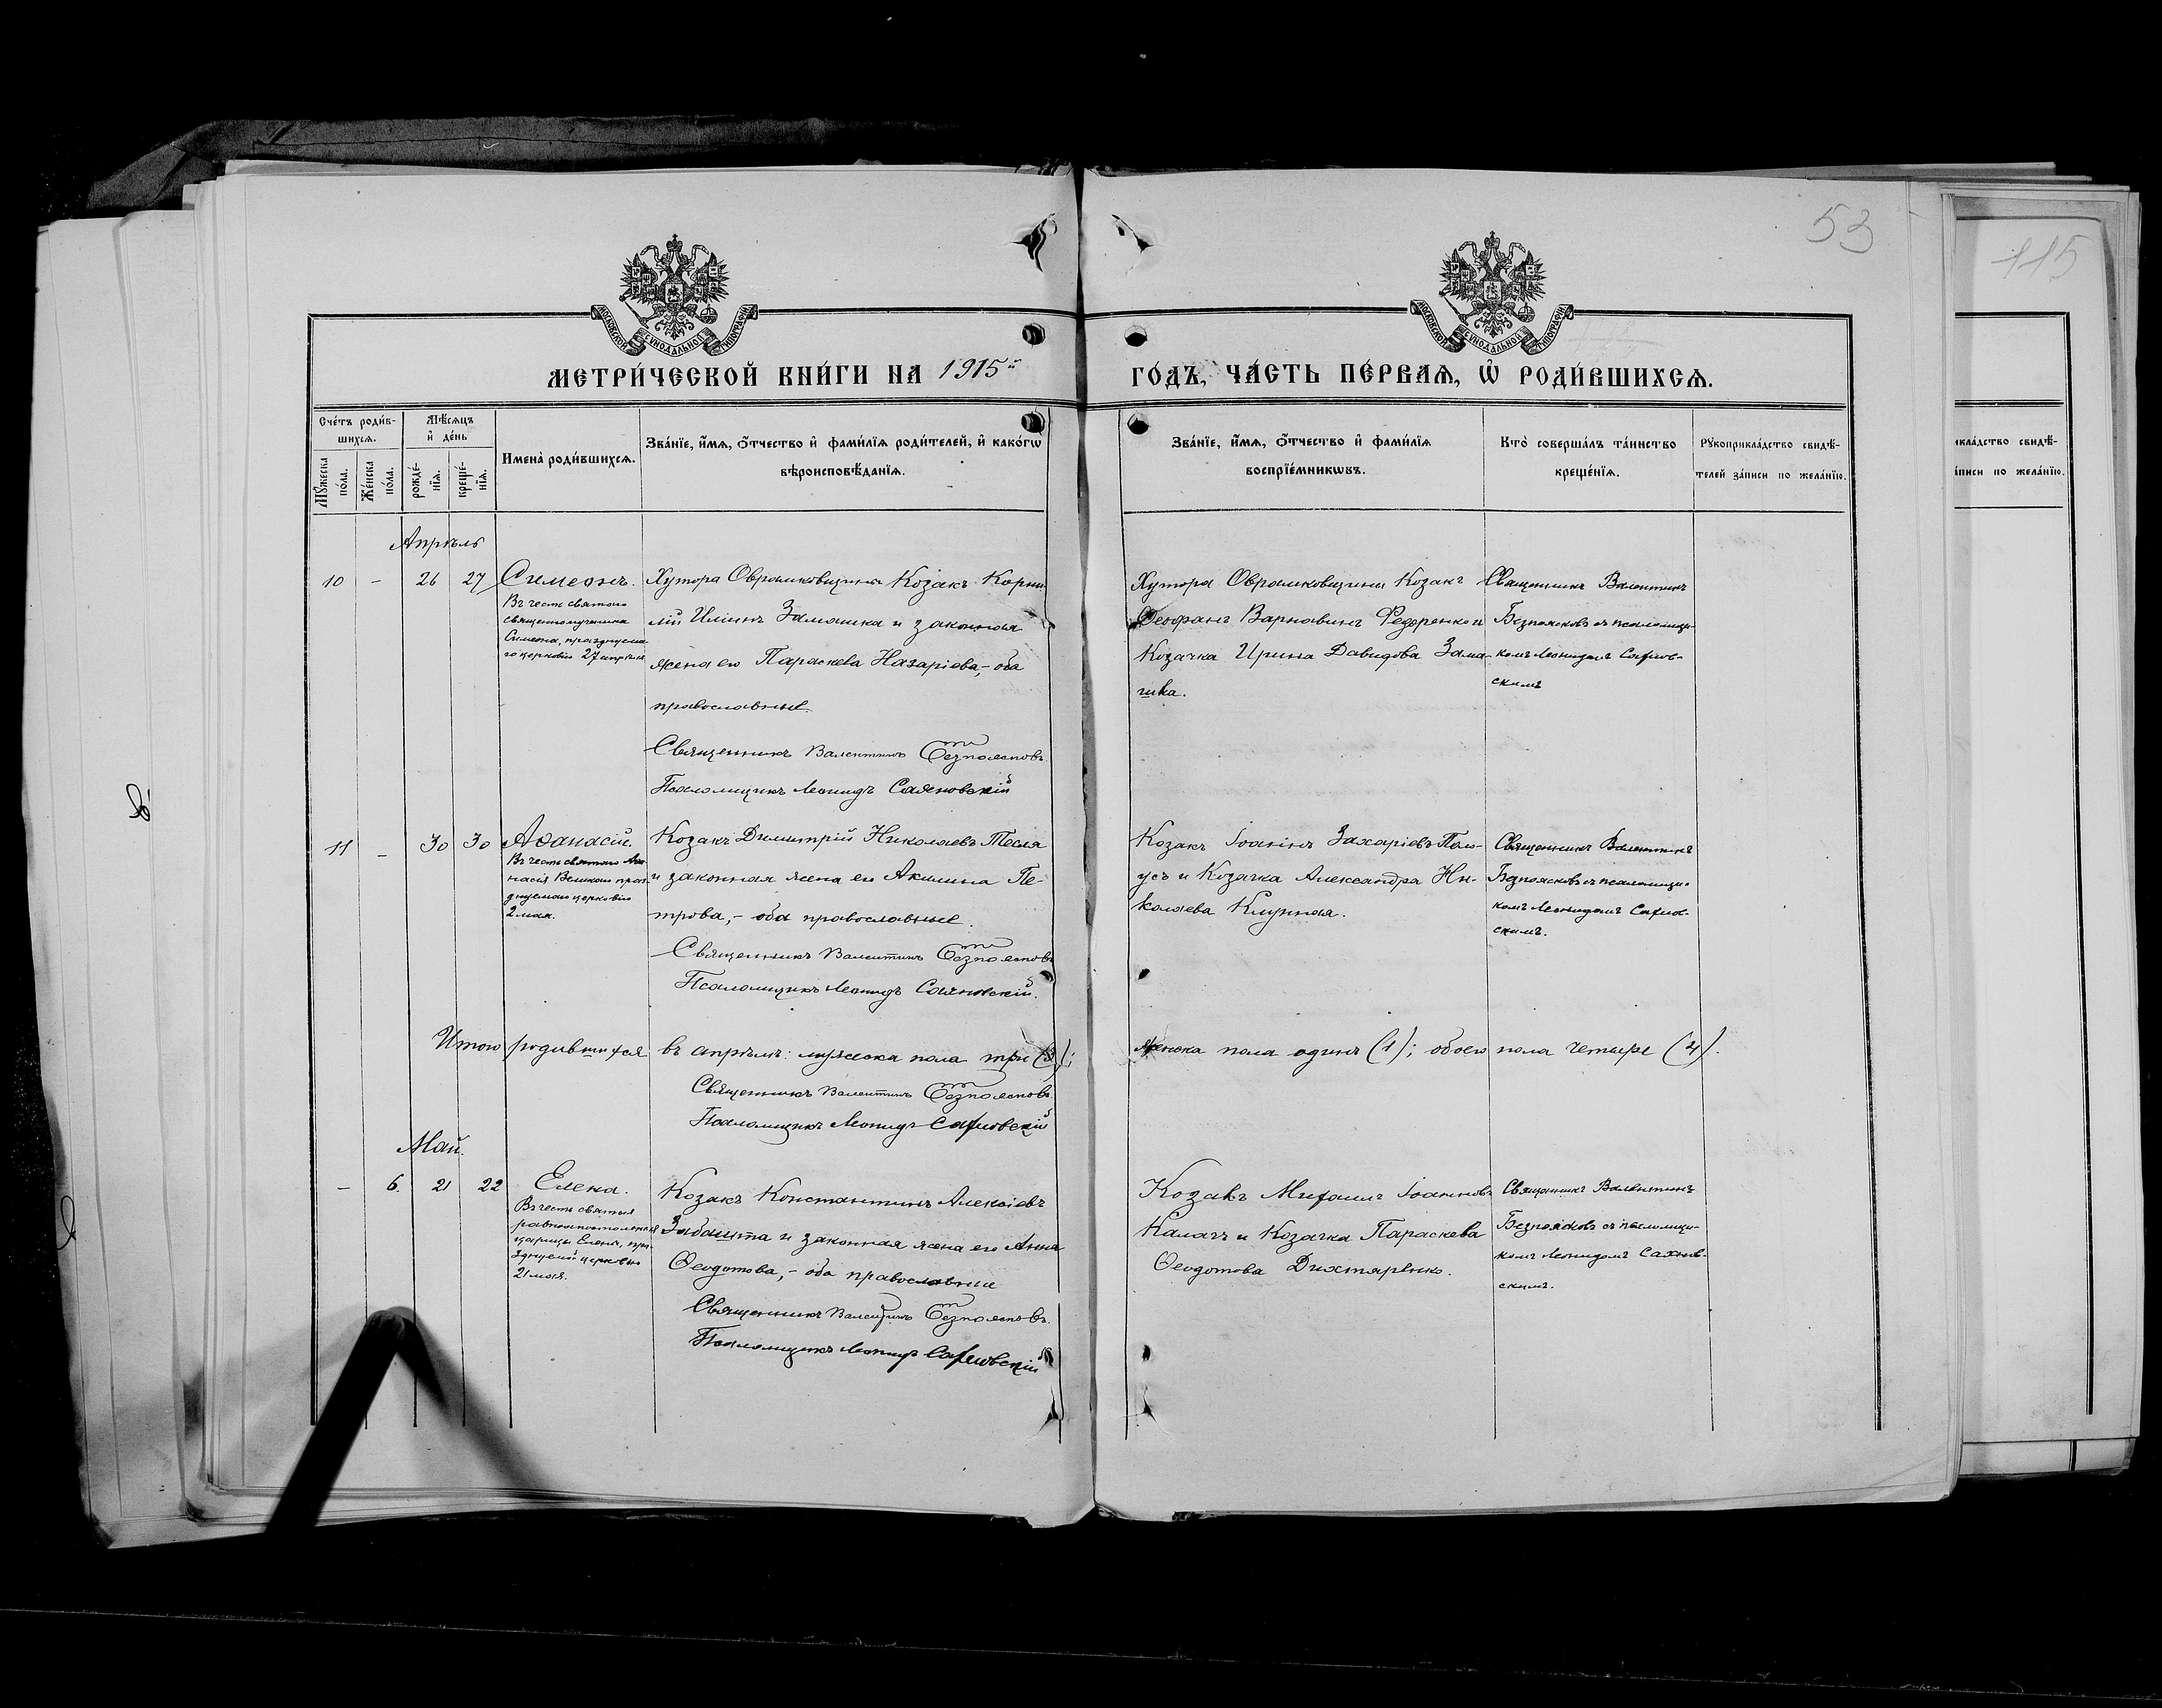 53
115
МОСКОВСКОЙ СѴНОДАЛЬНОЙ ТИПОГРАФІИ
МОСКОВСКОЙ СѴНОДАЛЬНОЙ ТИПОГРАФІИ
МЕТРИ́ЧЕСКОЙ КНИ́ГИ НА 1915й ГО́ДЪ, ЧА́СТЬ ПЕ́РВАѦ, Ѡ҆ РОДИ́ВШИХСѦ.
Сче́тъ роди́в-
шихсѧ.
Мꙋ́жеска
по́ла.
Же́нска
по́ла.
Мѣ́сѧцъ
и҆ де́нь
рожде́-
нїѧ.
креще́-
нїѧ.
Имена̀ роди́вшихсѧ.
Зва́нїе, и҆́мѧ, ѻ҆́тчество и҆ фами́лїѧ роди́телей, и҆ како́гѡ
вѣроисповѣ́данїѧ.
Зва́нїе, и҆́мѧ, ѻ҆́тчество и҆ фами́лїѧ
воспрїе́мникѡвъ.
Кто̀ соверша́лъ та́инство
креще́нїѧ.
Рꙋкоприкла́дство свидѣ́-
телей за́писи по жела́нїю.
икла́дство свидѣ́-
а́писи по жела́нїю.
Апрѣль
10 - 26 27 Симеонъ.
Въ честь святого
священномученика
Симеона, празднуема
го церковію 27 апрѣля
Хутора Оврамковщины Козакъ Корни
лій Иліинъ Замашка и законная
жена его Параскева Назаріева,- оба
православные.
Священникъ Валентинъ Безпоясковъ.
Псаломщикъ Леонидъ Сахновскій
Хутора Оврамковщины Козакъ
Феофанъ Варнавинъ Федоренко и
Козачка Ирина Давидова Зама-
шка.
Священникъ Валентинъ
Безпоясковъ съ псаломщи-
комъ Леонидомъ Сахнов-
скимъ
11 - 30 30 Аѳанасій.
Въ честь святого Аѳа-
насія Великаго праз-
днуемаго церковію
2 мая.
Козакъ Димитрій Николаевъ Тесля
и законная жена его Акилина Пе-
трова,- оба православные.
Священникъ Валентинъ Безпоясковъ
Псаломщикъ Леонидъ Сахновскій.
Козакъ Іоакінъ Захаріевъ Пам-
усъ и Козачка Александра Ни-
колаева Клунная.
Священникъ Валентинъ
Безпоясковъ съ псаломщи-
комъ Леонидомъ Сахнов-
скимъ.
Итого родившихся въ апрѣлѣ: мужеска пола три (3); женска пола одинъ (1); обоего пола четыре (4).
Священникъ Валентинъ Безпоясковъ.
Псаломщикъ Леонидъ Сахновскій
Май.
- 6. 21 22 Елена.
Въ честь святыя
равноапостольныя
царицы Елены, пра-
зднуемой церковію
21 мая.
Козакъ Константинъ Алексіевъ
Забашта и законная жена его Анна
Ѳеодотова,- оба православные
Священникъ Валентинъ Безпоясковъ.
Псаломщикъ Леонидъ Сахновскій
Козакъ Михаилъ Іоанновъ
Калачъ и Козачка Параскева
Ѳеодотова Дихтяренко.
Священникъ Валентинъ
Безпоясковъ съ псаломщи-
комъ Леонидомъ Сахнов-
скимъ.